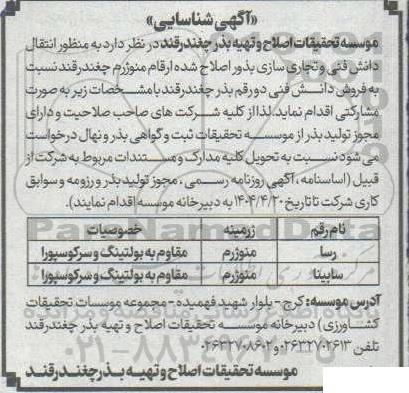 «آگهی شناسایی»
موسسه تحقیقات اصلاح و تهیه بذر چغندرقند در نظر دارد به منظور انتقال
دانش فنی و تجاری سازی بذور اصلاح شده ارقام منوژرم چغندرقند نسبت
به فروش دانش فنی دو رقم بذر چغندرقند با مشخصات زیر به صورت
مشارکتی اقدام نماید. لذا از کلیه شرکت های صاحب صلاحیت و دارای
مجوز تولید بذر از موسسه تحقیقات ثبت و گواهی بذر و نهال درخواست
می شود نسبت به تحویل کلیه مدارک و مستندات مربوط به شرکت از
قبیل (اساسنامه ، آگهی روزنامه رسمی ، مجوز تولید بذر و رزومه و سوابق
کاری شرکت تا تاریخ ۱۴۰۴/۴/۲۰ به دبیرخانه موسسه اقدام نمایند).
نام رقم زرمینه خصوصیات
رسا منوژرم مقاوم به بولتینگ و سرکوسپورا
سابینا منوژرم مقاوم به بولتینگ و سرکوسپورا
آدرس موسسه: کرج - بلوار شهید فهمیده - مجموعه موسسات تحقیقات
کشاورزی) دبیرخانه موسسه تحقیقات اصلاح و تهیه بذر چغندرقند
تلفن ۰۲۶۳۲۷۰۲۶۱۳ و ۰۲۶۳۲۷۰۸۶۰۲
موسسه تحقیقات اصلاح و تهیه بذر چغندرقند